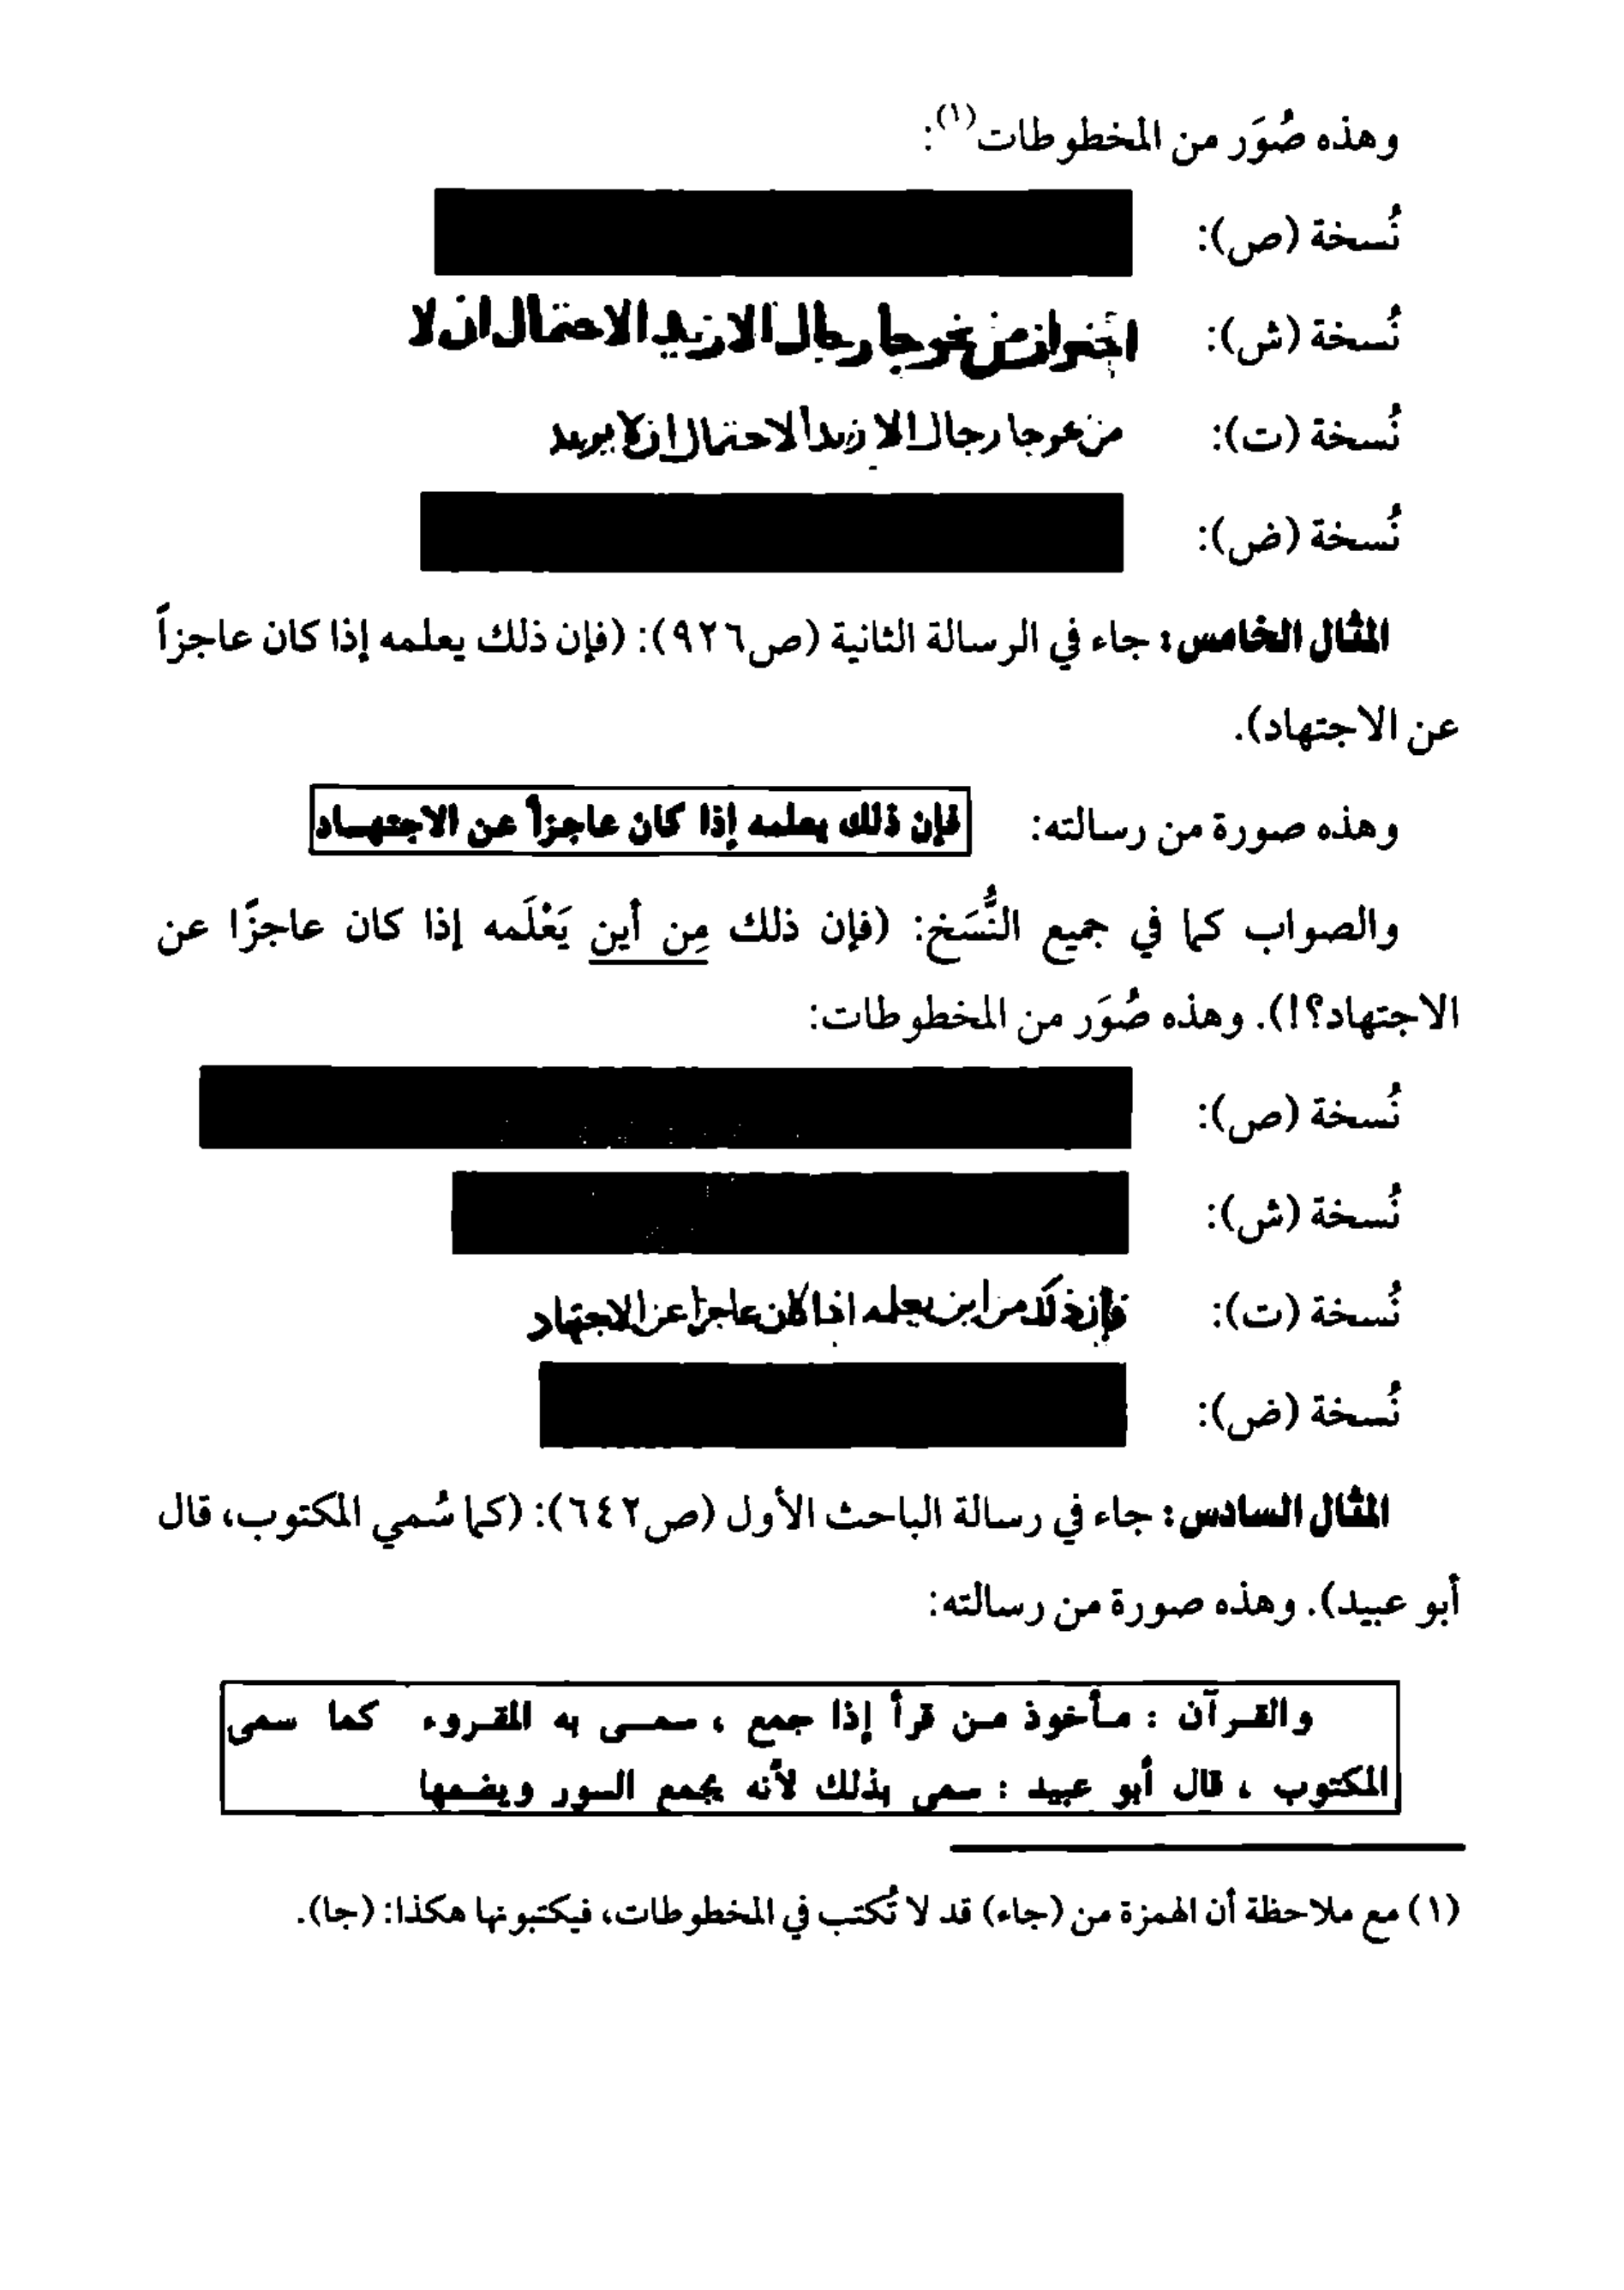 وهذه صُوَر من المخطوطات(١):
نُسخة (ص):
نُسخة (ش): احتراز من نحو جا رجال الا زيد الاحتمال ان لا
نُسخة (ت): من نحو جا رجال الا زيد الاحتمال ان لا يريد
نُسخة (ض):
المثال الخامس: جاء في الرسالة الثانية (ص٩٢٦): (فإن ذلك يعلمه إذا كان عاجزاً
عن الاجتهاد).
وهذه صورة من رسالته: فإن ذلك يعلمه إذا كان عاجزاً عن الاجتهــاد
والصواب كما في جميع النُّسَخ: (فإن ذلك مِن أين يَعْلَمه إذا كان عاجزًا عن
الاجتهاد؟!). وهذه صُوَر من المخطوطات:
نُسخة (ص):
نُسخة (ش):
نُسخة (ت): فإن ذلك من اين يعلمه اذا كان عاجزا عن الاجتهاد
نُسخة (ض):
المثال السادس: جاء في رسالة الباحث الأول (ص٦٤٢): (كما سُمي المكتوب، قال
أبو عبيد). وهذه صورة من رسالته:
والقـرآن : مـأخوذ مـن قرأ إذا جمع ، سمــى به المقـروء كما سمى
المكتوب ، قال أبو عبيد : سمى بذلك لأنه يجمع السور ويضمها
(١) مع ملاحظة أن الهمزة من (جاء) قد لا تُكتب في المخطوطات، فيكتبونها هكذا: (جا).